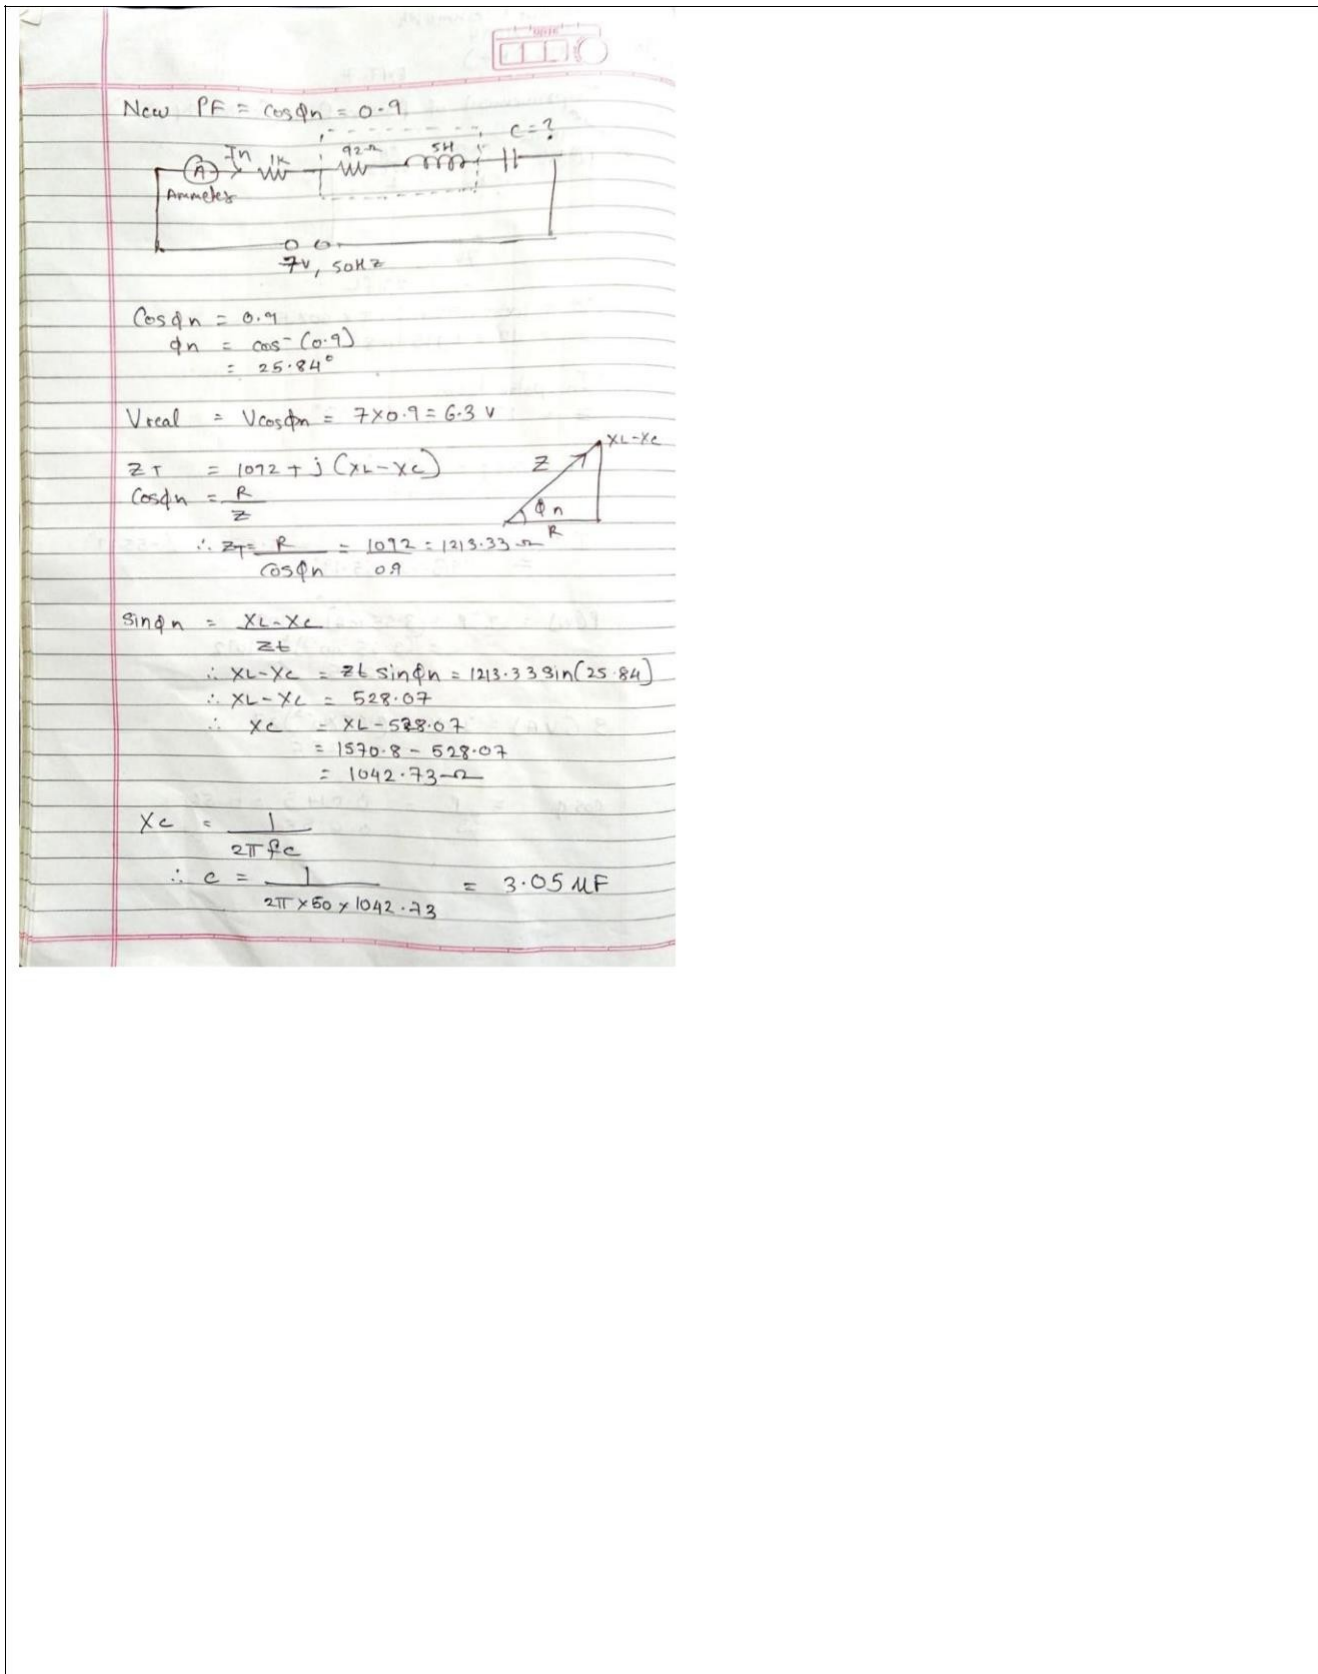 New PF = cosϕn = 0.9
C = ?
In 1K 92Ω 5H
A
Ammeter
7V, 50HZ
Cosϕn = 0.9
ϕn = cos⁻(0.9)
= 25.84°
Vreal = Vcosϕn = 7x0.9 = 6.3 V
XL-XC
ZT = 1092 + j (XL-XC) Z
Cosϕn = R/Z ϕn
R
∴ ZT = R/cosϕn = 1092/0.9 = 1213.33 Ω
sinϕn = XL-XC/Zt
∴ XL-XC = Zt sinϕn = 1213.33 sin(25.84)
∴ XL-XC = 528.07
∴ XC = XL-528.07
= 1570.8 - 528.07
= 1042.73 Ω
XC = 1/2πfc
∴ C = 1/2π x 50 x 1042.73 = 3.05 μF